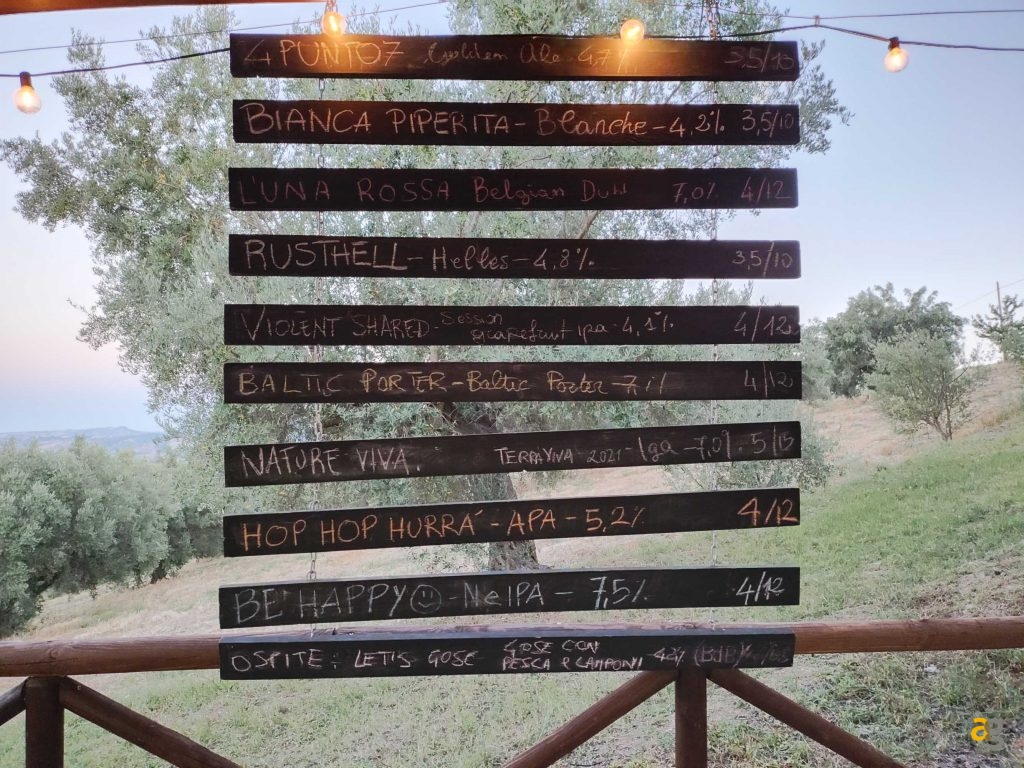 4 PUNTO7 Golden Ale 4,7% 3,5/10
BIANCA PIPERITA - Blanche - 4,2% 3,5/10
L'UNA ROSSA Belgian Dubl 7,0% 4/12
RUSTHELL - Helles - 4,8% 3,5/10
VIOLENT SHARED - Session
grapefruit ipa - 4,1% 4/12
BALTIC PORTER - Baltic Porter - 7,1% 4/12
NATURE VIVA. TERRAVIVA 2021 - Iga - 7,0% - 5/15
HOP HOP HURRÁ - APA - 5,2% 4/12
BE HAPPY☺ - NeIPA - 7,5% 4/12
OSPITE: LET'S GOSE GOSE CON
PESCA e LAMPONI 4,2% (BdB)
ag